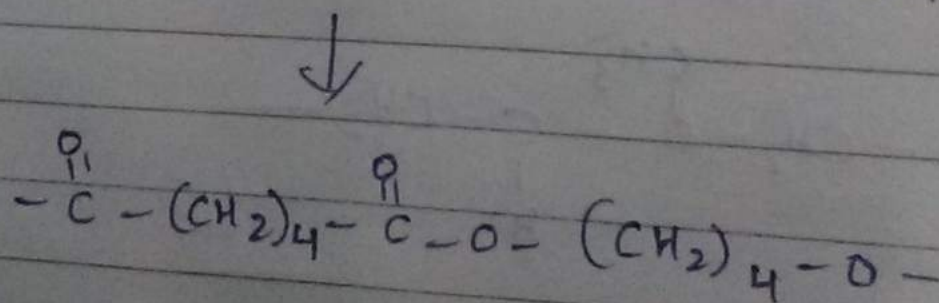 O O
- C - (CH₂)₄ - C - O - (CH₂)₄ - O -